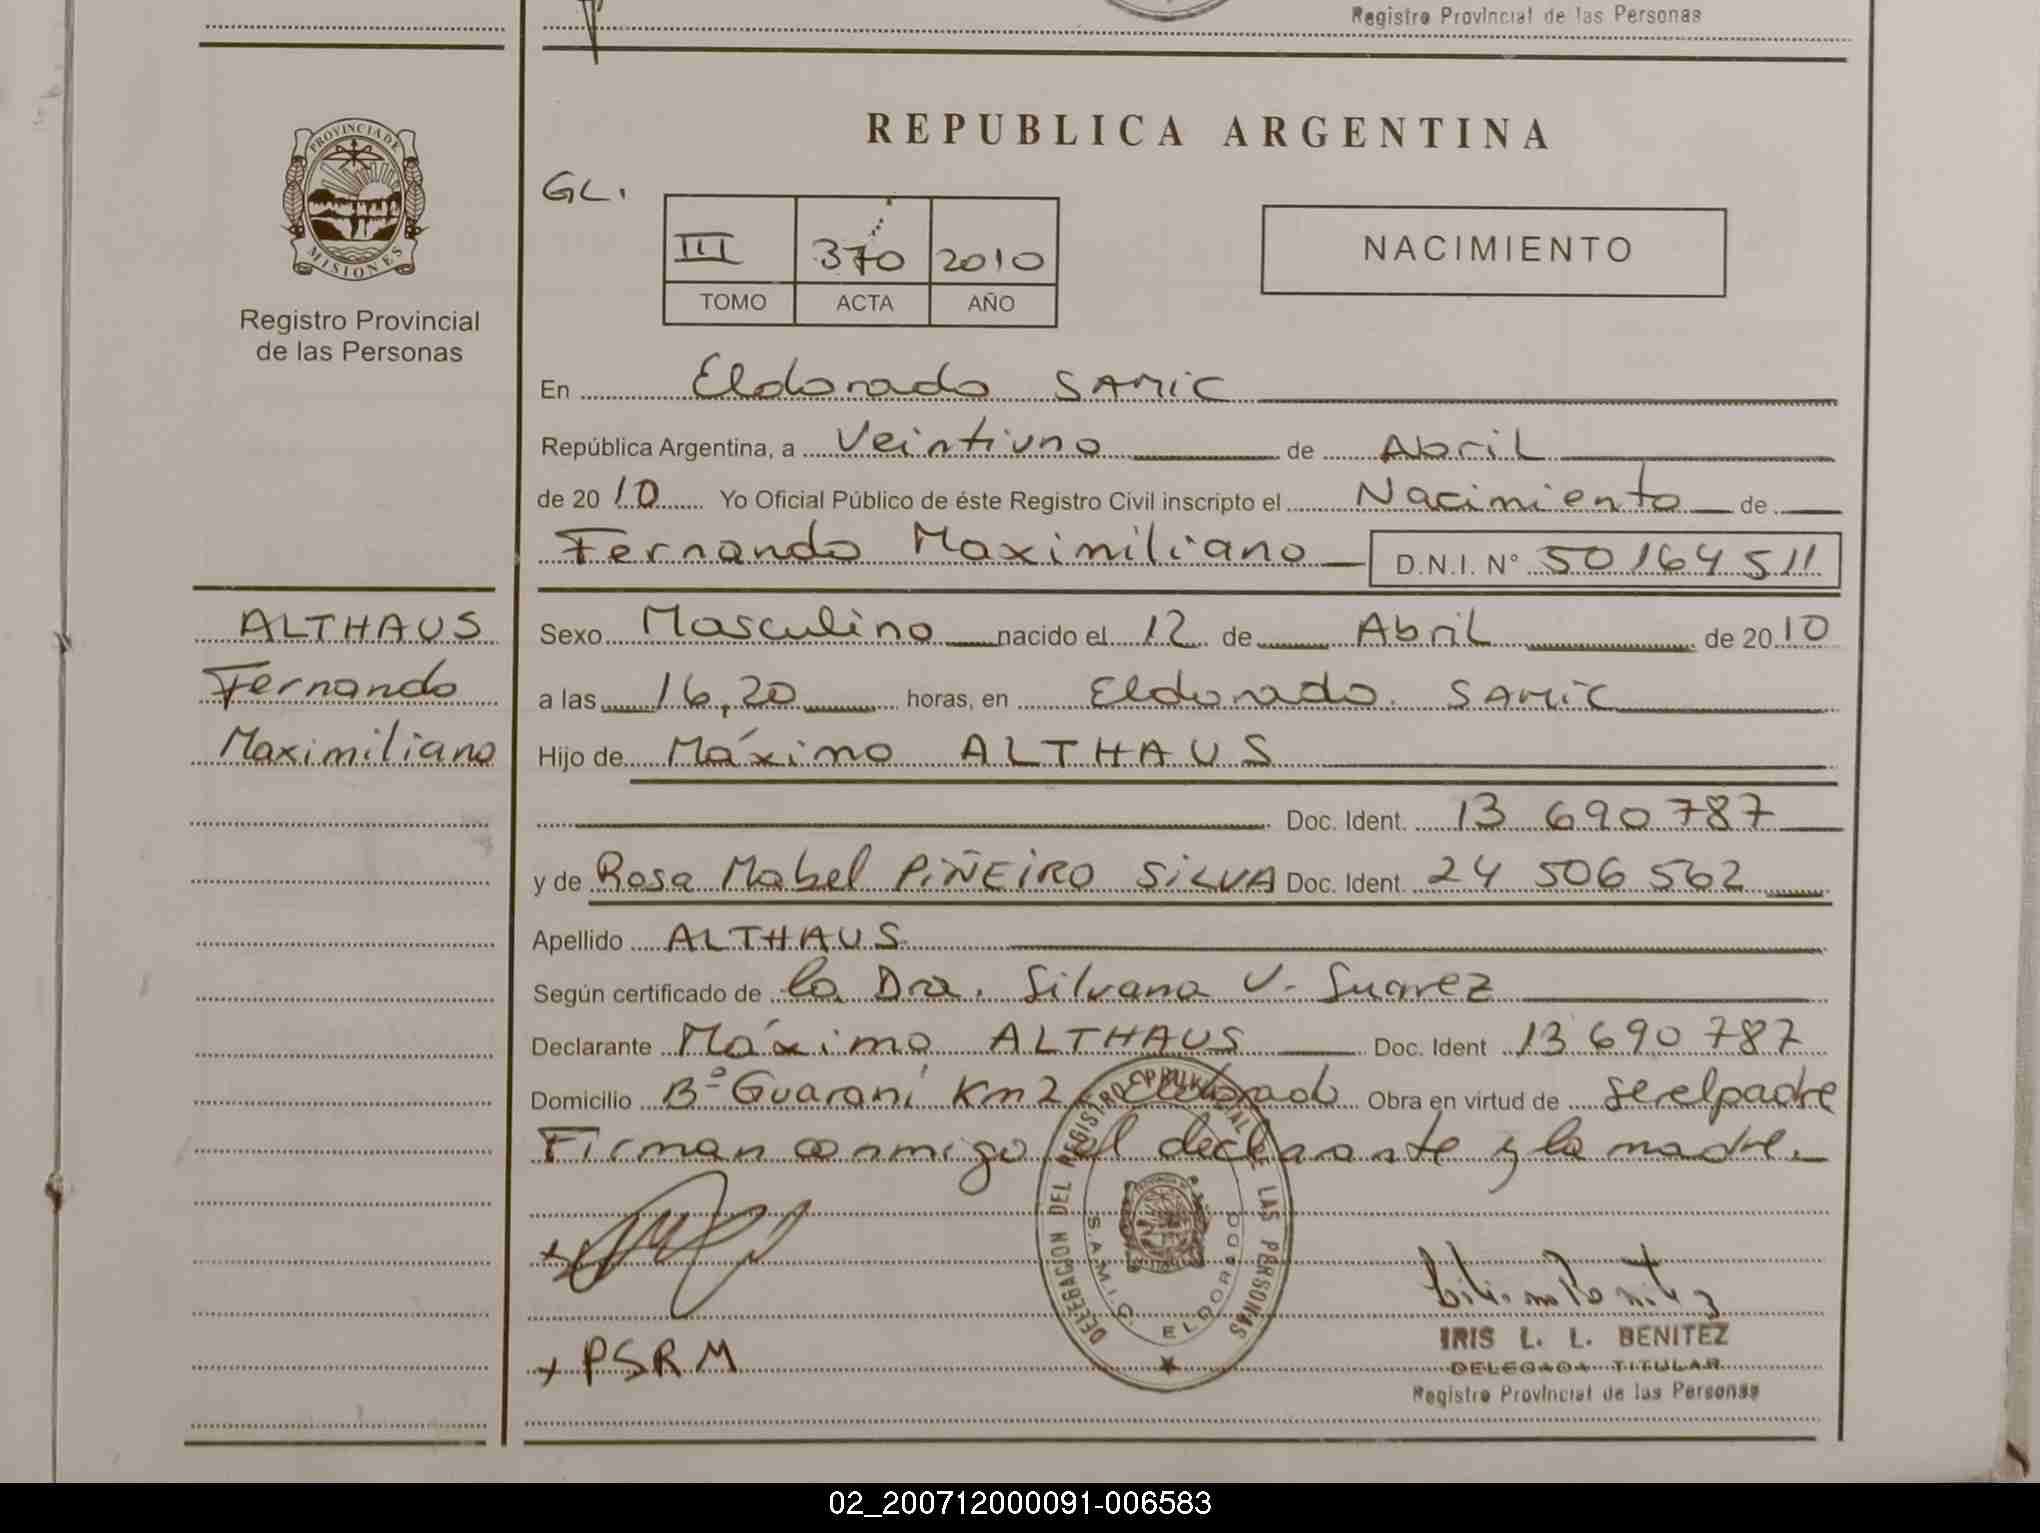 Registro Provincial de las Personas
PROVINCIA DE
MISIONES
Registro Provincial
de las Personas
REPUBLICA ARGENTINA
GL.
III 370 2010
TOMO ACTA AÑO
NACIMIENTO
En Eldorado SAMIC
República Argentina, a Veintiuno de Abril
de 2010 Yo Oficial Público de éste Registro Civil inscripto el Nacimiento de
Fernando Maximiliano D.N.I. N° 50164511
ALTHAUS
Fernando
Maximiliano
Sexo Masculino nacido el 12 de Abril de 2010
a las 16,20 horas, en Eldorado. SAMIC
Hijo de Máximo ALTHAUS
Doc. Ident. 13 690 787
y de Rosa Mabel PIÑEIRO SILVA Doc. Ident. 24 506 562
Apellido ALTHAUS
Según certificado de la Dra. Silvana V. Suarez
Declarante Máximo ALTHAUS Doc. Ident 13 690 787
Domicilio Bº Guaraní Km 2 Eldorado Obra en virtud de ser el padre
Firman conmigo el declarante y la madre.
DELEGACION DEL REGISTRO PROVINCIAL DE LAS PERSONAS
S.A.M.I.C. ELDORADO
x PSRM
IRIS L. L. BENITEZ
DELEGADA TITULAR
Registro Provincial de las Personas
02_200712000091-006583